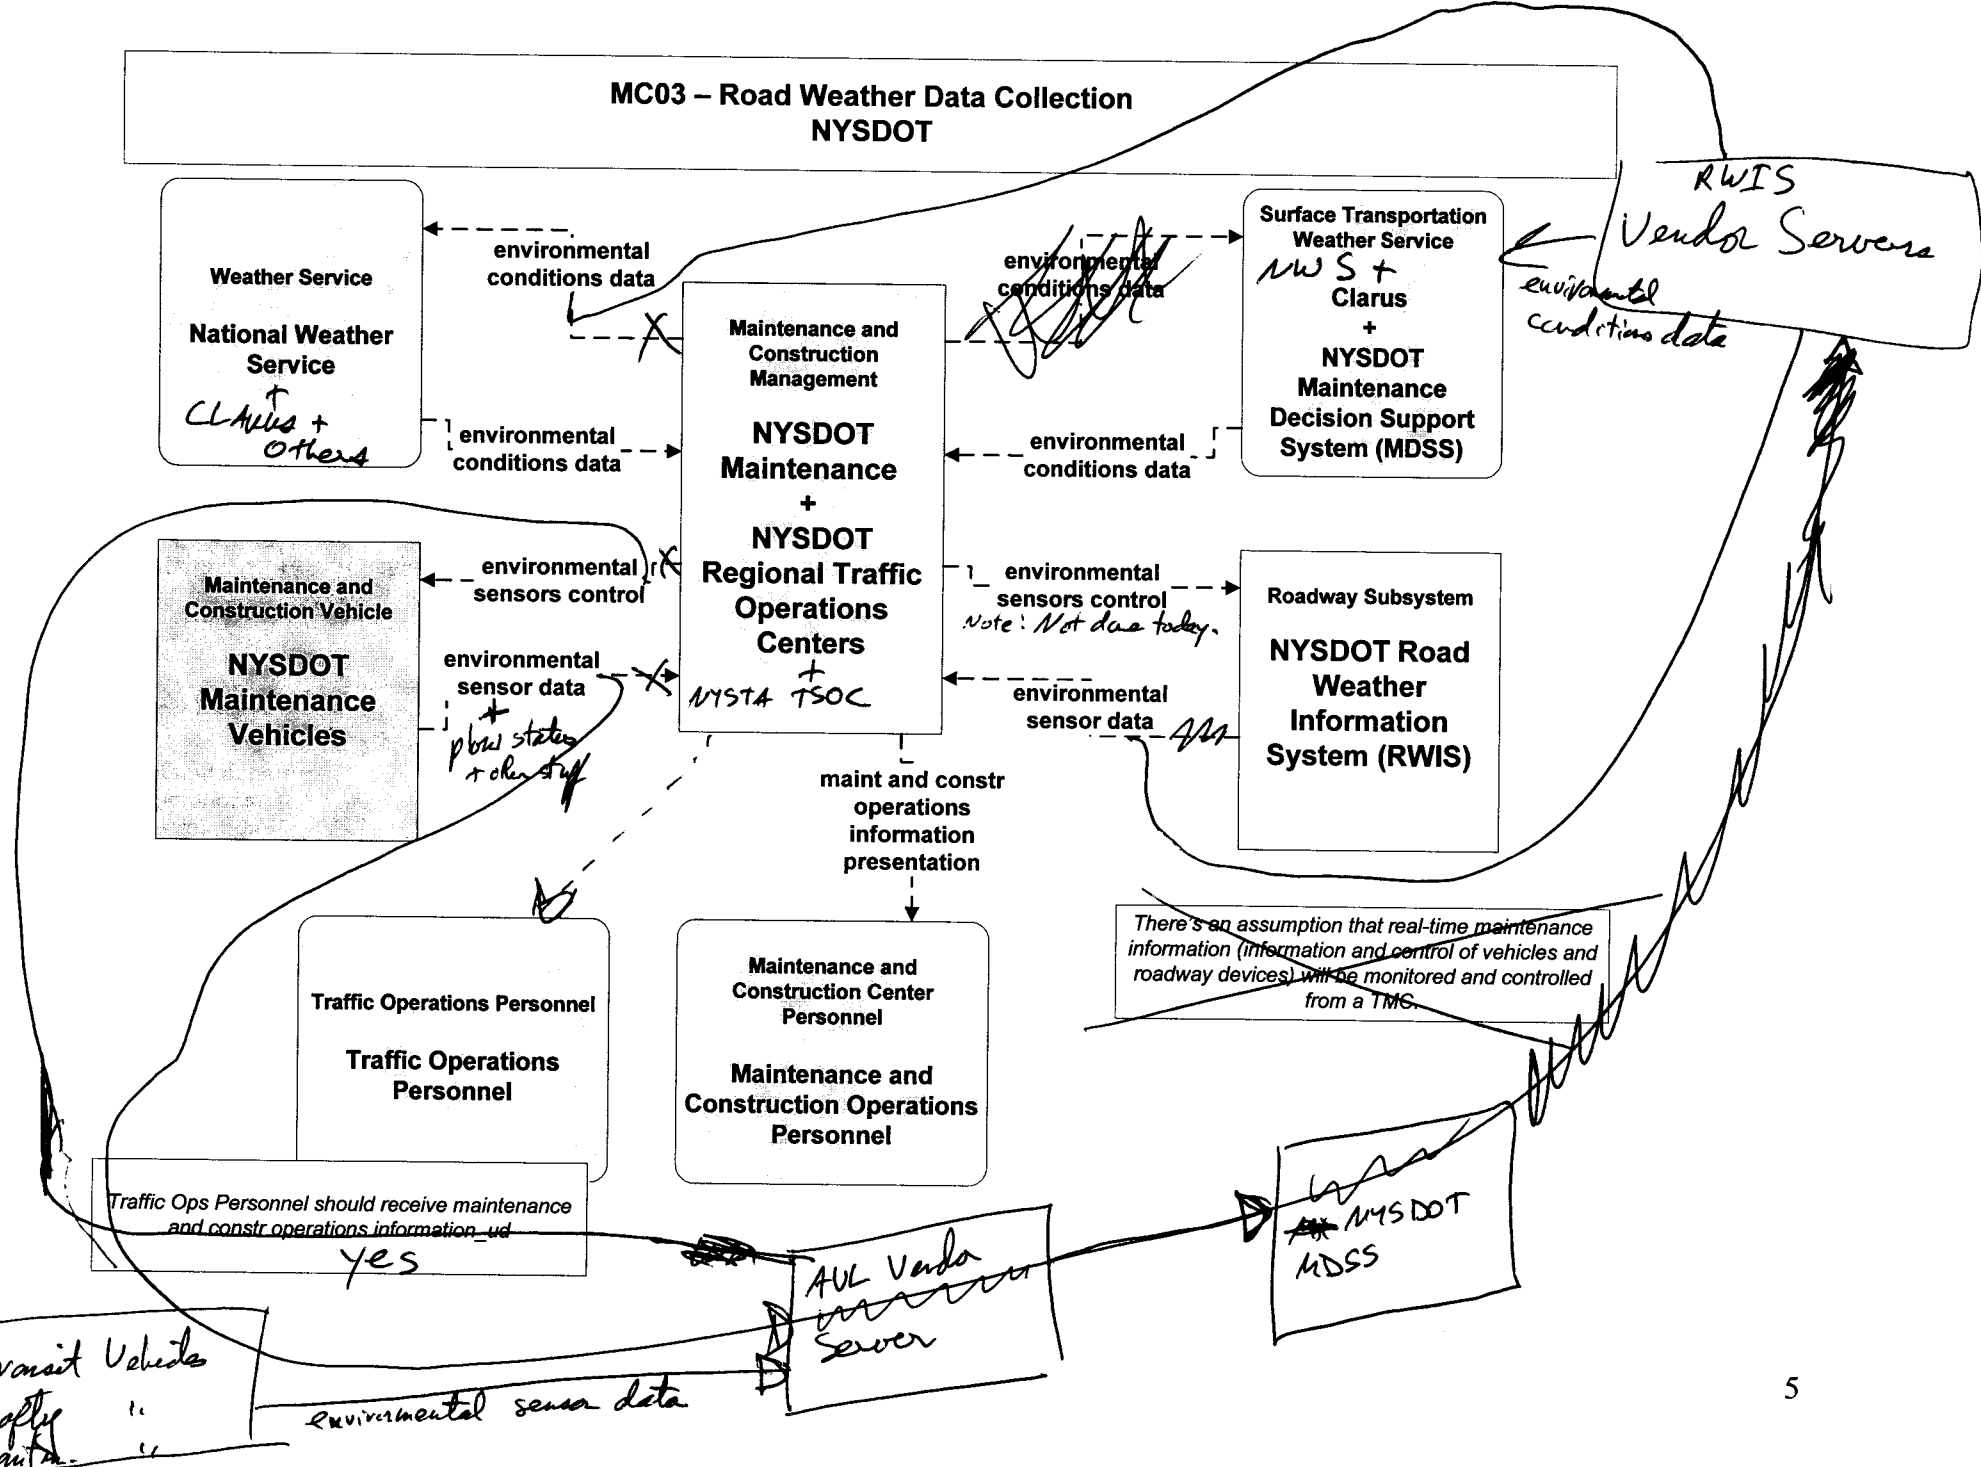 MC03 – Road Weather Data Collection
NYSDOT
RWIS
Vendor Servers
environmental
conditions data
Weather Service
National Weather
Service
+
CLARUS +
Others
environmental
conditions data
environmental
conditions data
Maintenance and
Construction
Management
NYSDOT
Maintenance
+
NYSDOT
Regional Traffic
Operations
Centers
+
NYSTA TSOC
environmental
conditions data
environmental
conditions data
Surface Transportation
Weather Service
NWS +
Clarus
+
NYSDOT
Maintenance
Decision Support
System (MDSS)
Maintenance and
Construction Vehicle
NYSDOT
Maintenance
Vehicles
environmental
sensors control
environmental
sensor data
+
plow status
+ other stuff
environmental
sensors control
Note: Not done today.
environmental
sensor data
Roadway Subsystem
NYSDOT Road
Weather
Information
System (RWIS)
maint and constr
operations
information
presentation
There's an assumption that real-time maintenance
information (information and control of vehicles and
roadway devices) will be monitored and controlled
from a TMC.
Traffic Operations Personnel
Traffic Operations
Personnel
Maintenance and
Construction Center
Personnel
Maintenance and
Construction Operations
Personnel
Traffic Ops Personnel should receive maintenance
and constr operations information_ud
yes
AVL Vendor
Server
NYSDOT
MDSS
Vehicles
"
"
environmental sensor data
5